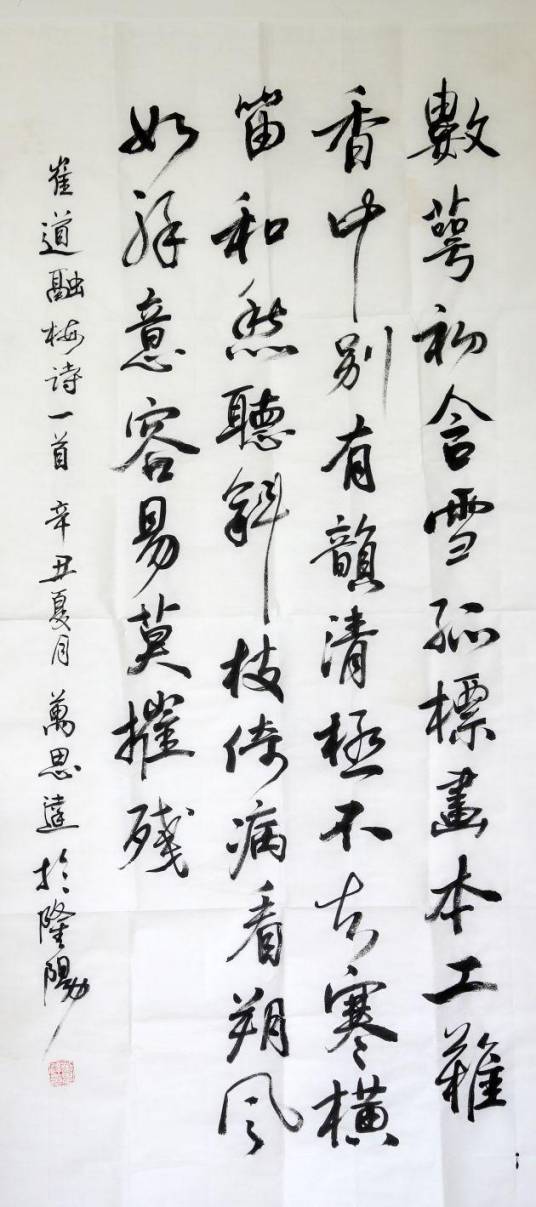 數萼初含雪孤標畫本工難
香中別有韻清極不知寒橫
笛和愁聽斜枝倚病看朔風
如解意容易莫摧殘
崔道融梅诗一首 辛丑夏月 萬思達於隆陽